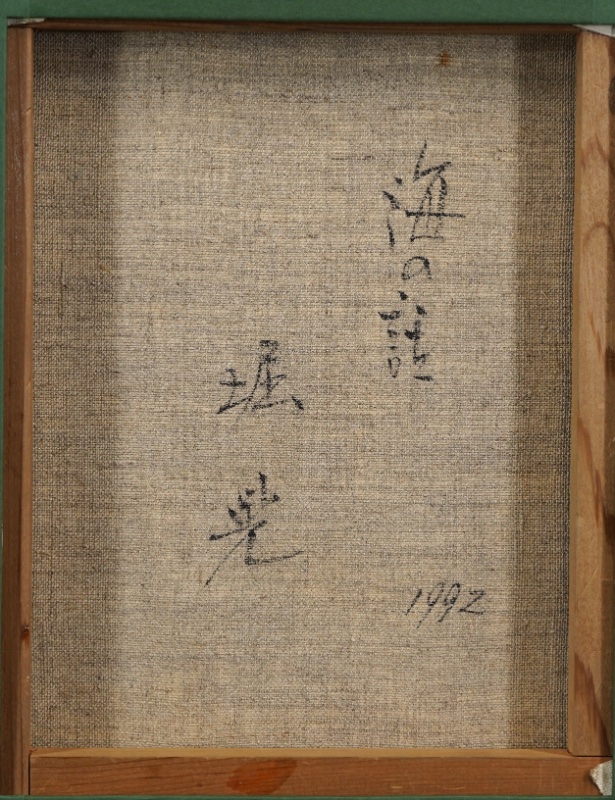 海の詩
堀 光
1992